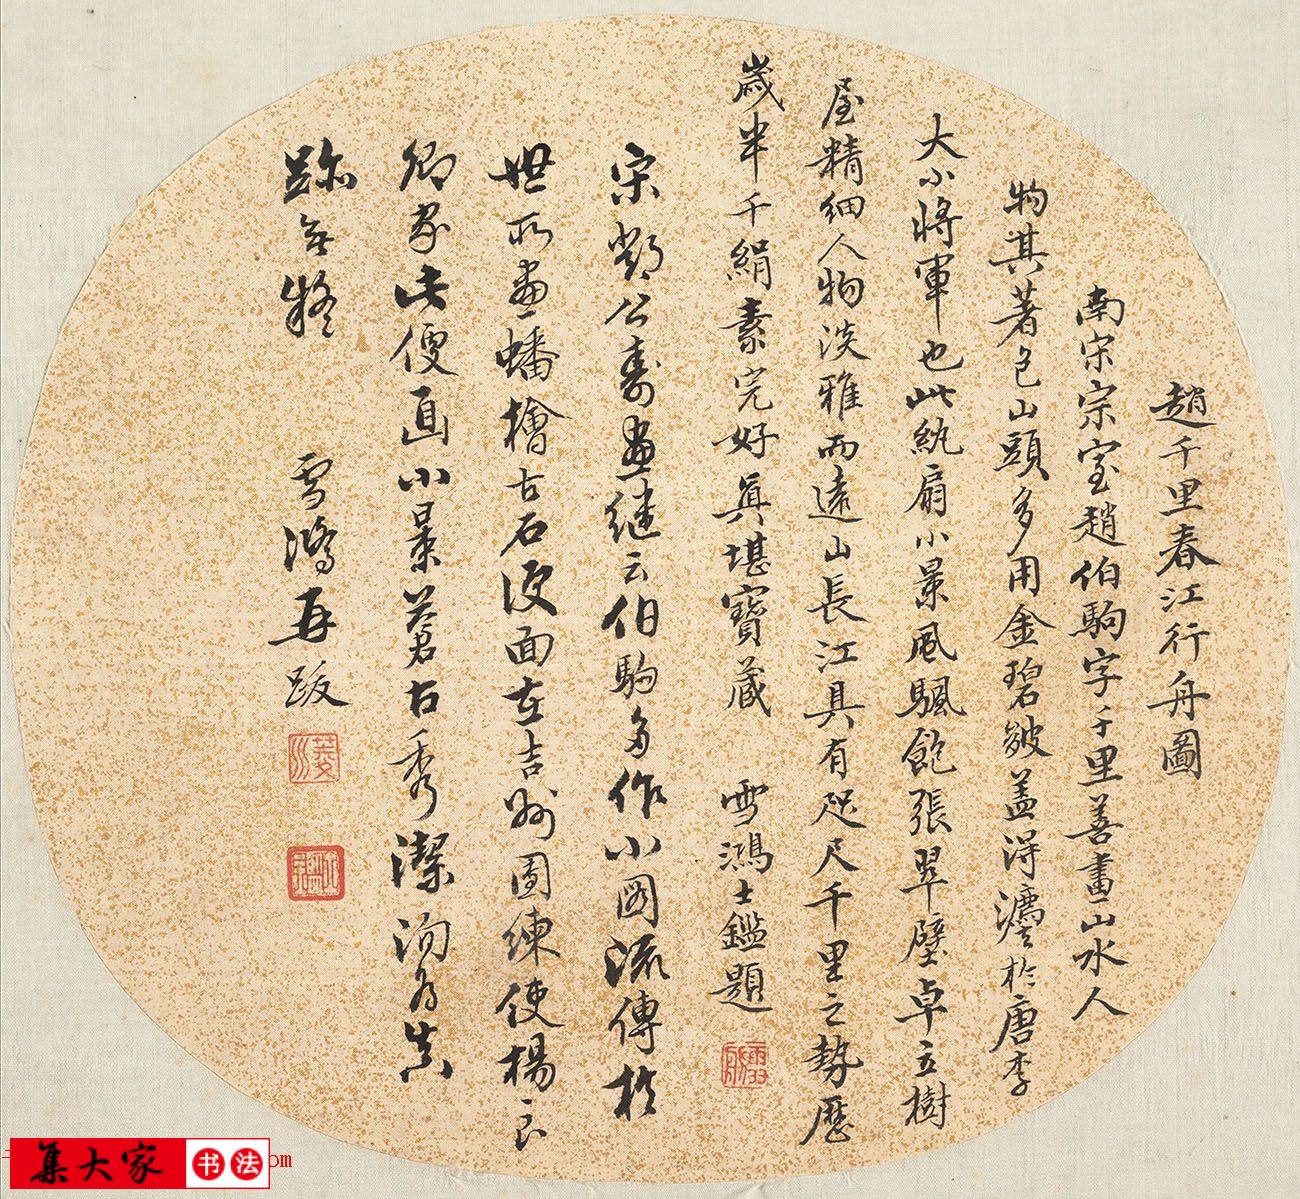 趙千里春江行舟圖
南宋宗室趙伯駒字千里善畫山水人
物淇著色山頭多用金碧皴蓋得濫觴於唐李
大小將軍也此紈扇小景風颿飽張翠壁卓立樹
屋精細人物淡雅而遠山長江具有咫尺千里之勢歷
歲半千絹素完好真堪寶藏 雪鴻士鑑題
宋鄧公壽畫继云伯駒多作小图流傳於
世所畫蟠檜古石便面在吉州團練使楊
卿家此便面小景蒼古秀潔洵為真
跡無疑 雪鴻再跋
集大家 书法
om